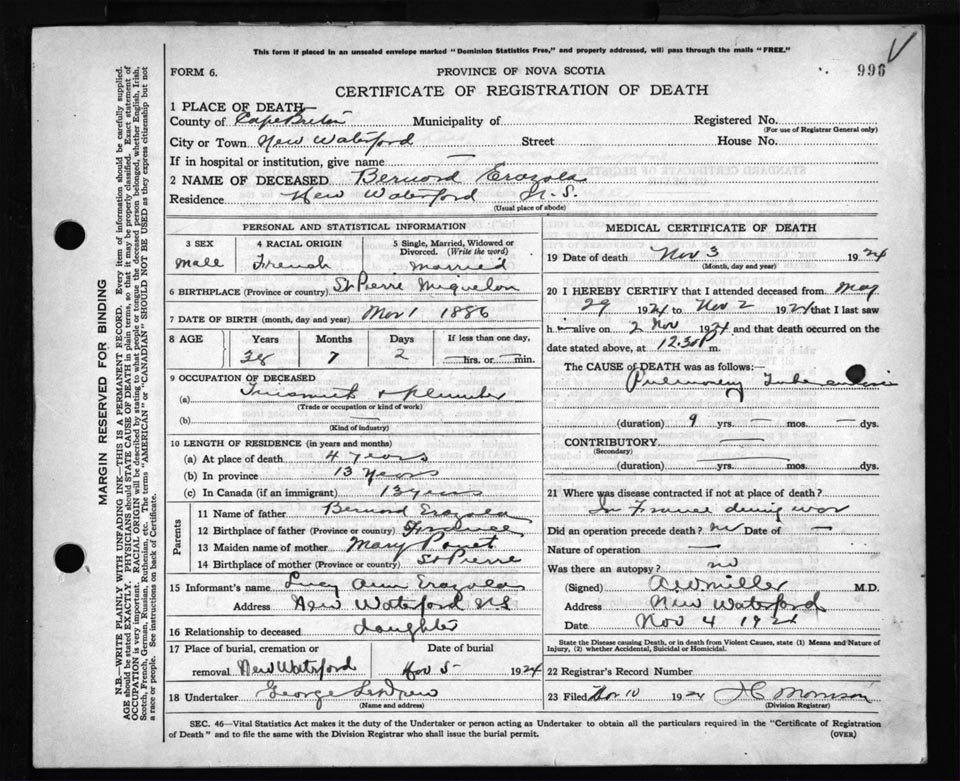 This form if placed in an unsealed envelope marked "Dominion Statistics Free," and properly addressed, will pass through the mails "FREE."
996
FORM 6.
PROVINCE OF NOVA SCOTIA
CERTIFICATE OF REGISTRATION OF DEATH
1 PLACE OF DEATH—
County of Cape Breton Municipality of Registered No.
(For use of Registrar General only)
City or Town New Waterford Street House No.
If in hospital or institution, give name —
2 NAME OF DECEASED Bernard Erazola
Residence New Waterford N.S.
(Usual place of abode)
PERSONAL AND STATISTICAL INFORMATION
3 SEX 4 RACIAL ORIGIN 5 Single, Married, Widowed or Divorced. (Write the word)
Male French Married
6 BIRTHPLACE (Province or country) St Pierre Miquelon
7 DATE OF BIRTH (month, day and year) 1 1886
8 AGE Years Months Days If less than one day,
38 7 2 — hrs. or — min.
9 OCCUPATION OF DECEASED
(a) Tinsmith & plumber
(Trade or occupation or kind of work)
(b)
(Kind of industry)
10 LENGTH OF RESIDENCE (in years and months)
(a) At place of death 4 years
(b) In province 13 Years
(c) In Canada (if an immigrant) 13 years
Parents
11 Name of father Bernard Erazola
12 Birthplace of father (Province or country)
13 Maiden name of mother Mary
14 Birthplace of mother (Province or country) St Pierre
15 Informant's name Lucy Ann Erazola
Address New Waterford NS
16 Relationship to deceased daughter
17 Place of burial, cremation or removal New Waterford
Date of burial Nov 5 1924
18 Undertaker George
(Name and address)
MEDICAL CERTIFICATE OF DEATH
19 Date of death Nov 3 1924
(Month, day and year)
20 I HEREBY CERTIFY that I attended deceased from May
29 1924 to Nov 2 1924 that I last saw
h im alive on 2 Nov 1924 and that death occurred on the
date stated above, at 12.30 P m.
The CAUSE OF DEATH was as follows:—
Pulmonary Tuberculosis
(duration) 9 yrs. — mos. — dys.
CONTRIBUTORY —
(Secondary)
(duration) — yrs. — mos. — dys.
21 Where was disease contracted if not at place of death?
In France during war
Did an operation precede death? no Date of —
Nature of operation —
Was there an autopsy? no
(Signed) A.W. Miller M.D.
Address New Waterford
Date Nov 4 1924
State the Disease causing Death, or in death from Violent Causes, state (1) Means and Nature of Injury, (2) whether Accidental, Suicidal or Homicidal.
22 Registrar's Record Number
23 Filed Nov 10 1924 Morrison
(Division Registrar)
SEC. 46—Vital Statistics Act makes it the duty of the Undertaker or person acting as Undertaker to obtain all the particulars required in the "Certificate of Registration
of Death" and to file the same with the Division Registrar who shall issue the burial permit.
(OVER)
MARGIN RESERVED FOR BINDING
N.B.—WRITE PLAINLY WITH UNFADING INK—THIS IS A PERMANENT RECORD. Every item of information should be carefully supplied.
AGE should be stated EXACTLY. PHYSICIANS should STATE CAUSE OF DEATH in plain terms, so that it may be properly classified. Exact statement of
OCCUPATION is very important. RACIAL ORIGIN will be described by stating to what people or tongue the deceased person belonged, whether English, Irish,
Scotch, French, German, Russian, Ruthenian, etc. The terms "AMERICAN" or "CANADIAN" SHOULD NOT BE USED as they express citizenship but not
a race or people. See instructions on back of Certificate.